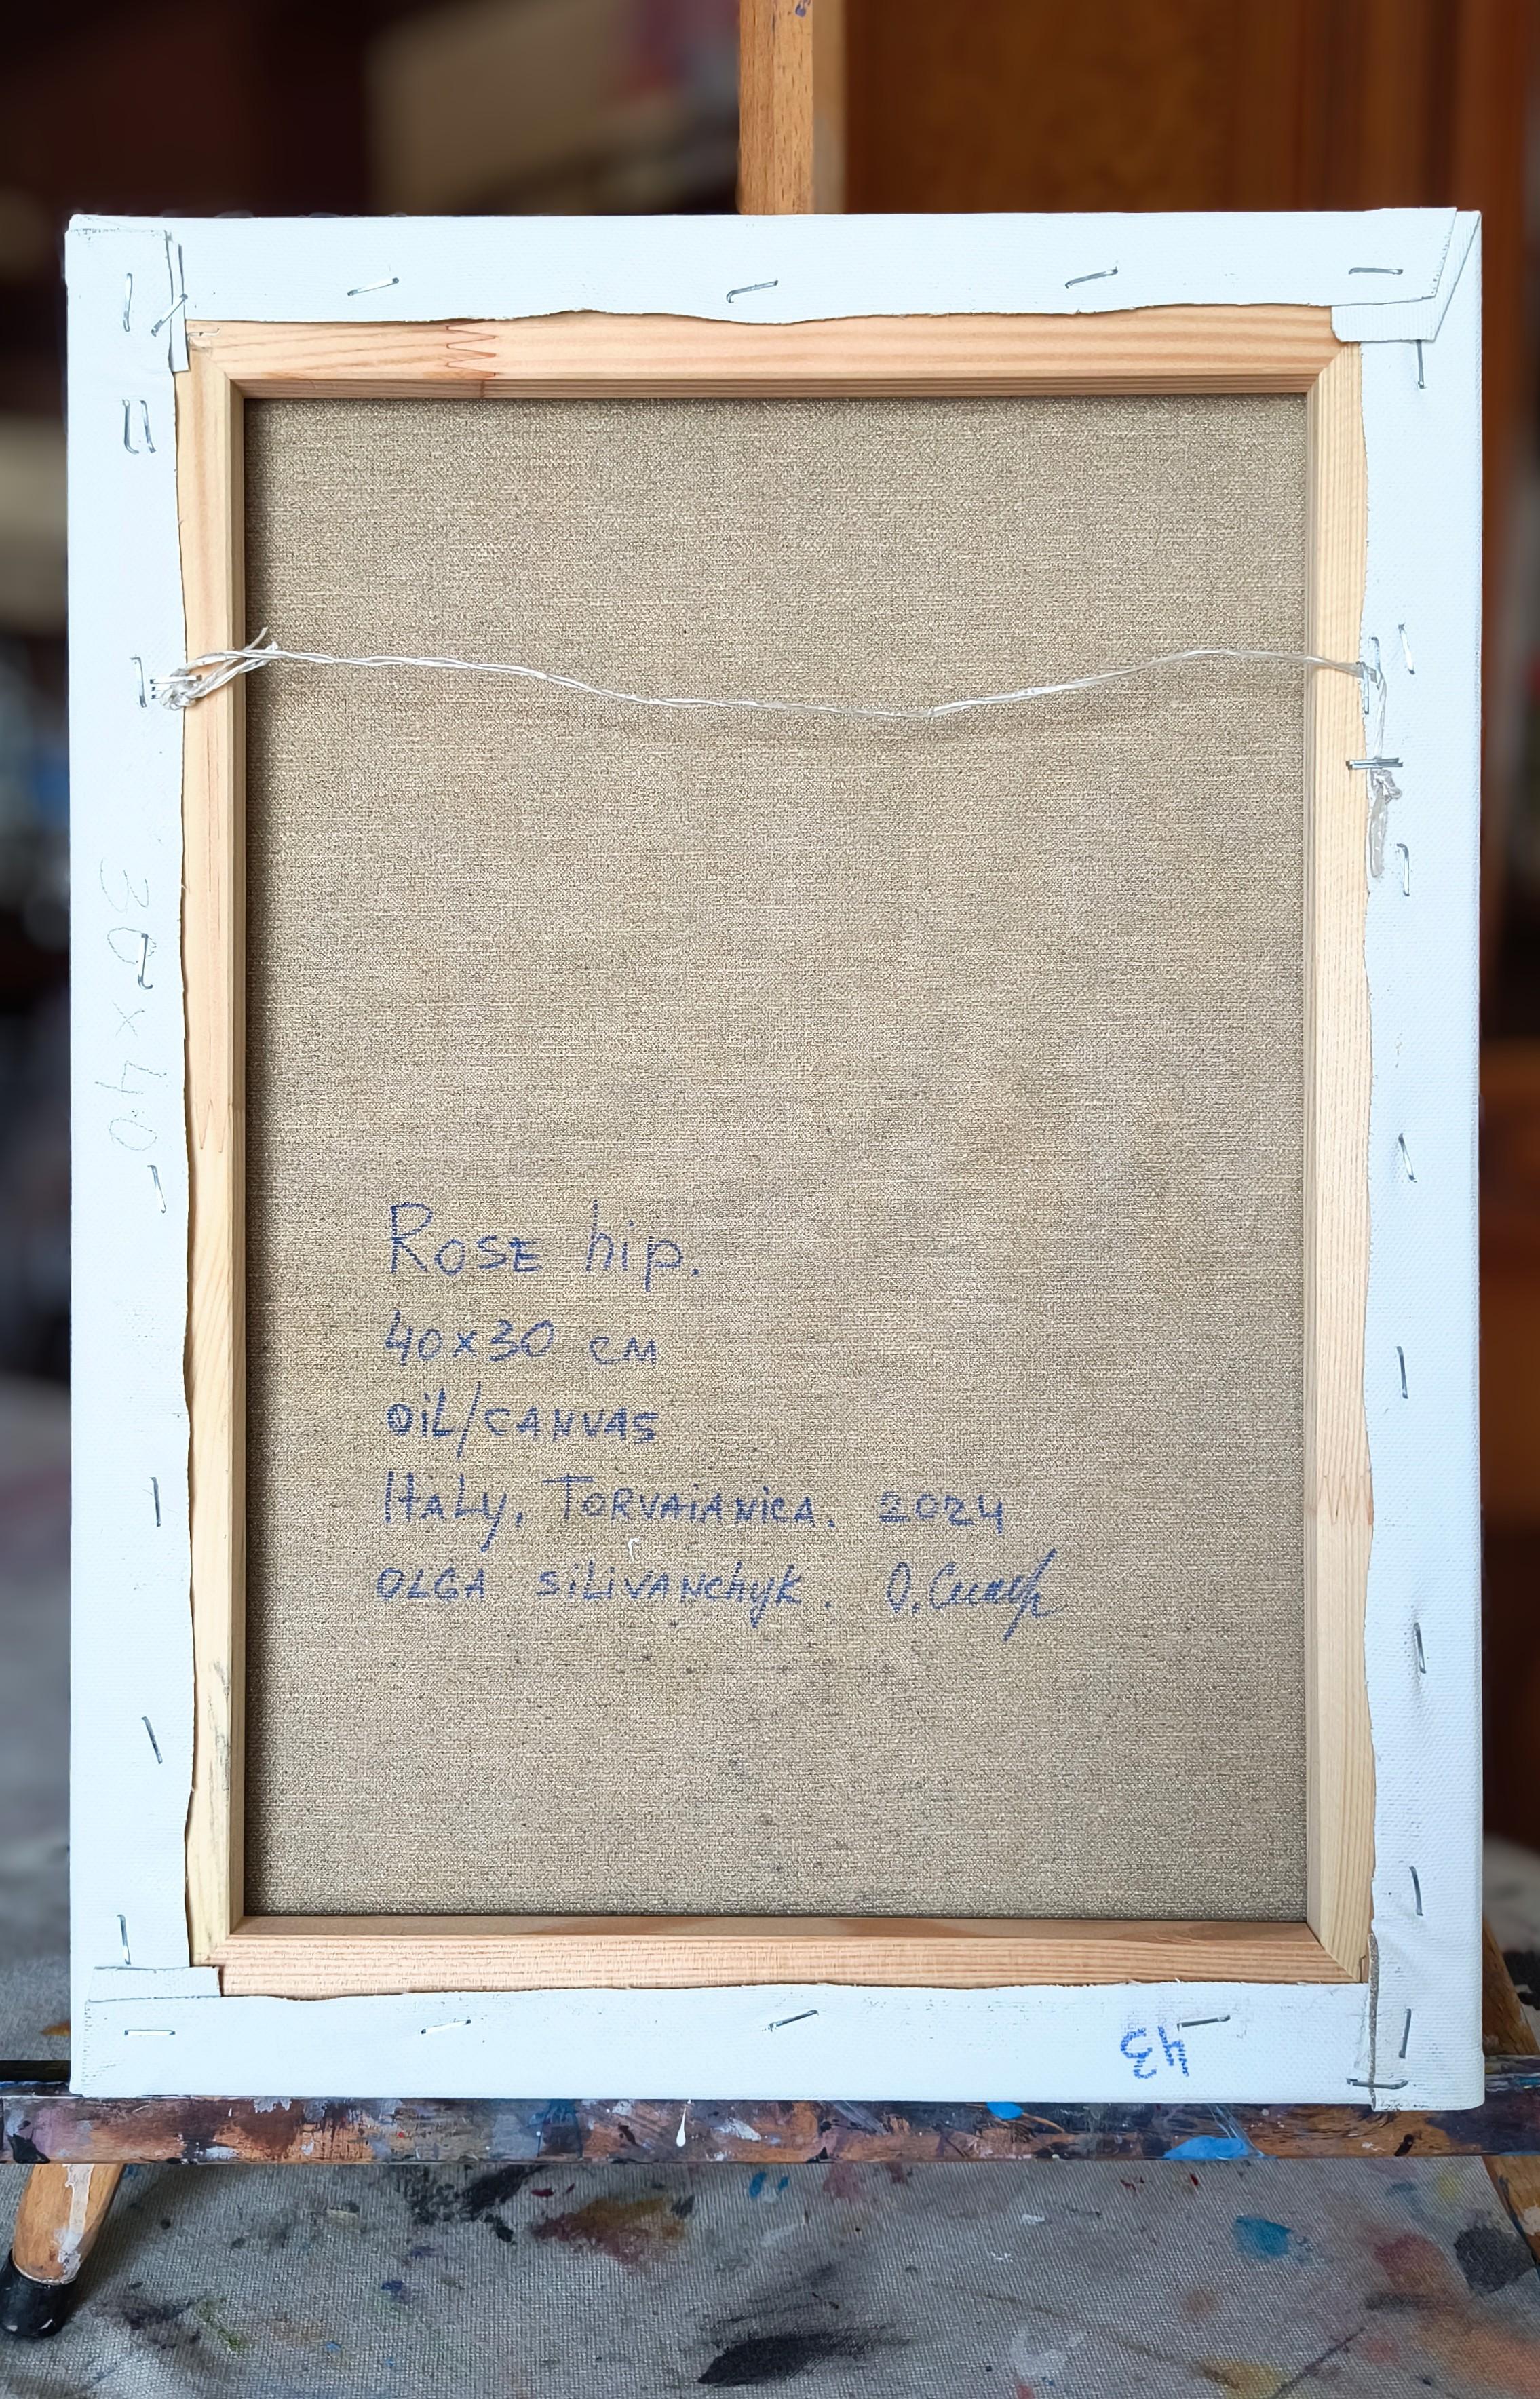 30x40
Rose hip.
40x30 см
OiL/CANVAS
ITALY, TORVAIANICA. 2024
OLGA SiLiVANchyk. О.Силив
43